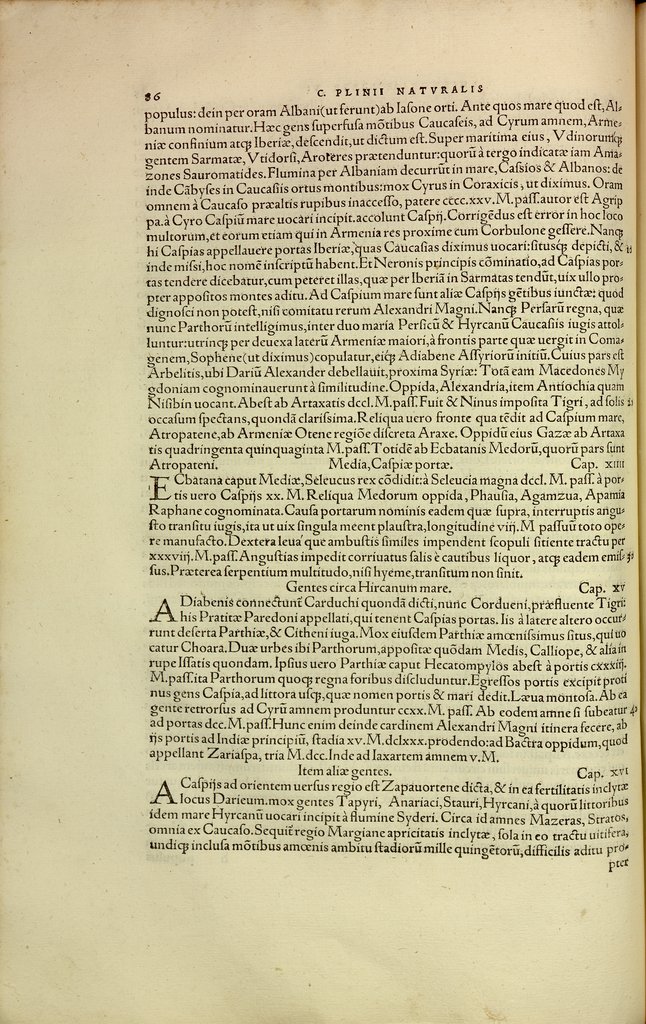 86
C. PLINII NATVRALIS
populus: dein per oram Albani (ut ferunt) ab Iasone orti. Ante quos mare quod est, Al-
banum nominatur. Hæc gens superfusa mōtibus Caucaseis, ad Cyrum amnem, Arme-
niæ confinium atq; Iberiæ, descendit, ut dictum est. Super maritima eius, Vdinorumq;
gentem Sarmatæ, Vtidorsi, Aroteres prætenduntur: quorū à tergo indicatæ iam Ama-
zones Sauromatides. Flumina per Albaniam decurrūt in mare, Cassios & Albanos: de
inde Cābyses in Caucasiis ortus montibus: mox Cyrus in Coraxicis, ut diximus. Oram
omnem à Caucaso præaltis rupibus inaccesso, patere cccc.xxv. M. pass. autor est Agrip
pa. à Cyro Caspiū mare uocari incipit. accolunt Caspij. Corrigēdus est error in hoc loco
multorum, et eorum etiam qui in Armenia res proxime cum Corbulone gessere. Nanq;
hi Caspias appellauere portas Iberiæ, quas Caucasias diximus uocari: situsq; depicti, &
inde missi, hoc nomē inscriptū habent. Et Neronis principis cōminatio, ad Caspias por-
tas tendere dicebatur, cum peteret illas, quæ per Iberiā in Sarmatas tendūt, uix ullo pro-
pter appositos montes aditu. Ad Caspium mare sunt aliæ Caspijs gētibus iunctæ: quod
dignosci non potest, nisi comitatu rerum Alexandri Magni. Nanq; Persarū regna, quæ
nunc Parthorū intelligimus, inter duo maria Persicū & Hyrcanū Caucasiis iugis attol-
luntur: utrinq; per deuexa laterū Armeniæ maiori, à frontis parte quæ uergit in Coma-
genem, Sophene (ut diximus) copulatur, eiq; Adiabene Assyriorū initiū. Cuius pars est
Arbelitis, ubi Dariū Alexander debellauit, proxima Syriæ: Totā eam Macedones My
gdoniam cognominauerunt à similitudine. Oppida, Alexandria, item Antiochia quam
Nisibin uocant. Abest ab Artaxatis dccl. M. pass. Fuit & Ninus imposita Tigri, ad solis
occasum spectans, quondā clarissima. Reliqua uero fronte qua tēdit ad Caspium mare,
Atropatene, ab Armeniæ Otene regiōe discreta Araxe. Oppidū eius Gazæ ab Artaxa
tis quadringenta quinquaginta M. pass. Totidē ab Ecbatanis Medorū, quorū pars sunt
Atropateni. Media, Caspiæ portæ. Cap. xiiii
ECbatana caput Mediæ, Seleucus rex cōdidit: à Seleucia magna dccl. M. pass. à por-
tis uero Caspijs xx. M. Reliqua Medorum oppida, Phausia, Agamzua, Apamia
Raphane cognominata. Causa portarum nominis eadem quæ supra, interruptis angu-
sto transitu iugis, ita ut uix singula meent plaustra, longitudine viij. M passuū toto ope-
re manufacto. Dextera leua'que ambustis similes impendent scopuli sitiente tractu per
xxxviij. M. pass. Angustias impedit corriuatus salis è cautibus liquor, atq; eadem emis-
sus. Præterea serpentium multitudo, nisi hyeme, transitum non sinit.
Gentes circa Hircanum mare. Cap. xv
ADiabenis connectunt Carduchi quondā dicti, nunc Cordueni, præfluente Tigri:
his Pratitæ Paredoni appellati, qui tenent Caspias portas. Iis à latere altero occur-
runt deserta Parthiæ, & Citheni iuga. Mox eiusdem Parthiæ amœnissimus situs, qui uo
catur Choara. Duæ urbes ibi Parthorum, appositæ quōdam Medis, Calliope, & alia in
rupe Issatis quondam. Ipsius uero Parthiæ caput Hecatompylos abest à portis cxxxiij.
M. pass. ita Parthorum quoq; regna foribus discluduntur. Egressos portis excipit proti
nus gens Caspia, ad littora usq;, quæ nomen portis & mari dedit. Læua montosa. Ab ea
gente retrorsus ad Cyrū amnem produntur ccxx. M. pass. Ab eodem amne si subeatur
ad portas dcc. M. pass. Hunc enim deinde cardinem Alexandri Magni itinera fecere, ab
ijs portis ad Indiæ principiū, stadia xv. M. dclxxx. prodendo: ad Bactra oppidum, quod
appellant Zariaspa, tria M. dcc. Inde ad Iaxartem amnem v. M.
Item aliæ gentes. Cap. xvi
A Caspijs ad orientem uersus regio est Zapauortene dicta, & in ea fertilitatis inclytæ
locus Darieum. mox gentes Tapyri, Anariaci, Stauri, Hyrcani, à quorū littoribus
idem mare Hyrcanū uocari incipit à flumine Syderi. Circa id amnes Mazeras, Stratos,
omnia ex Caucaso. Sequit̃ regio Margiane apricitatis inclytæ, sola in eo tractu uitifera,
undiq; inclusa mōtibus amœnis ambitu stadiorū mille quingētorū, difficilis aditu pro-
pter